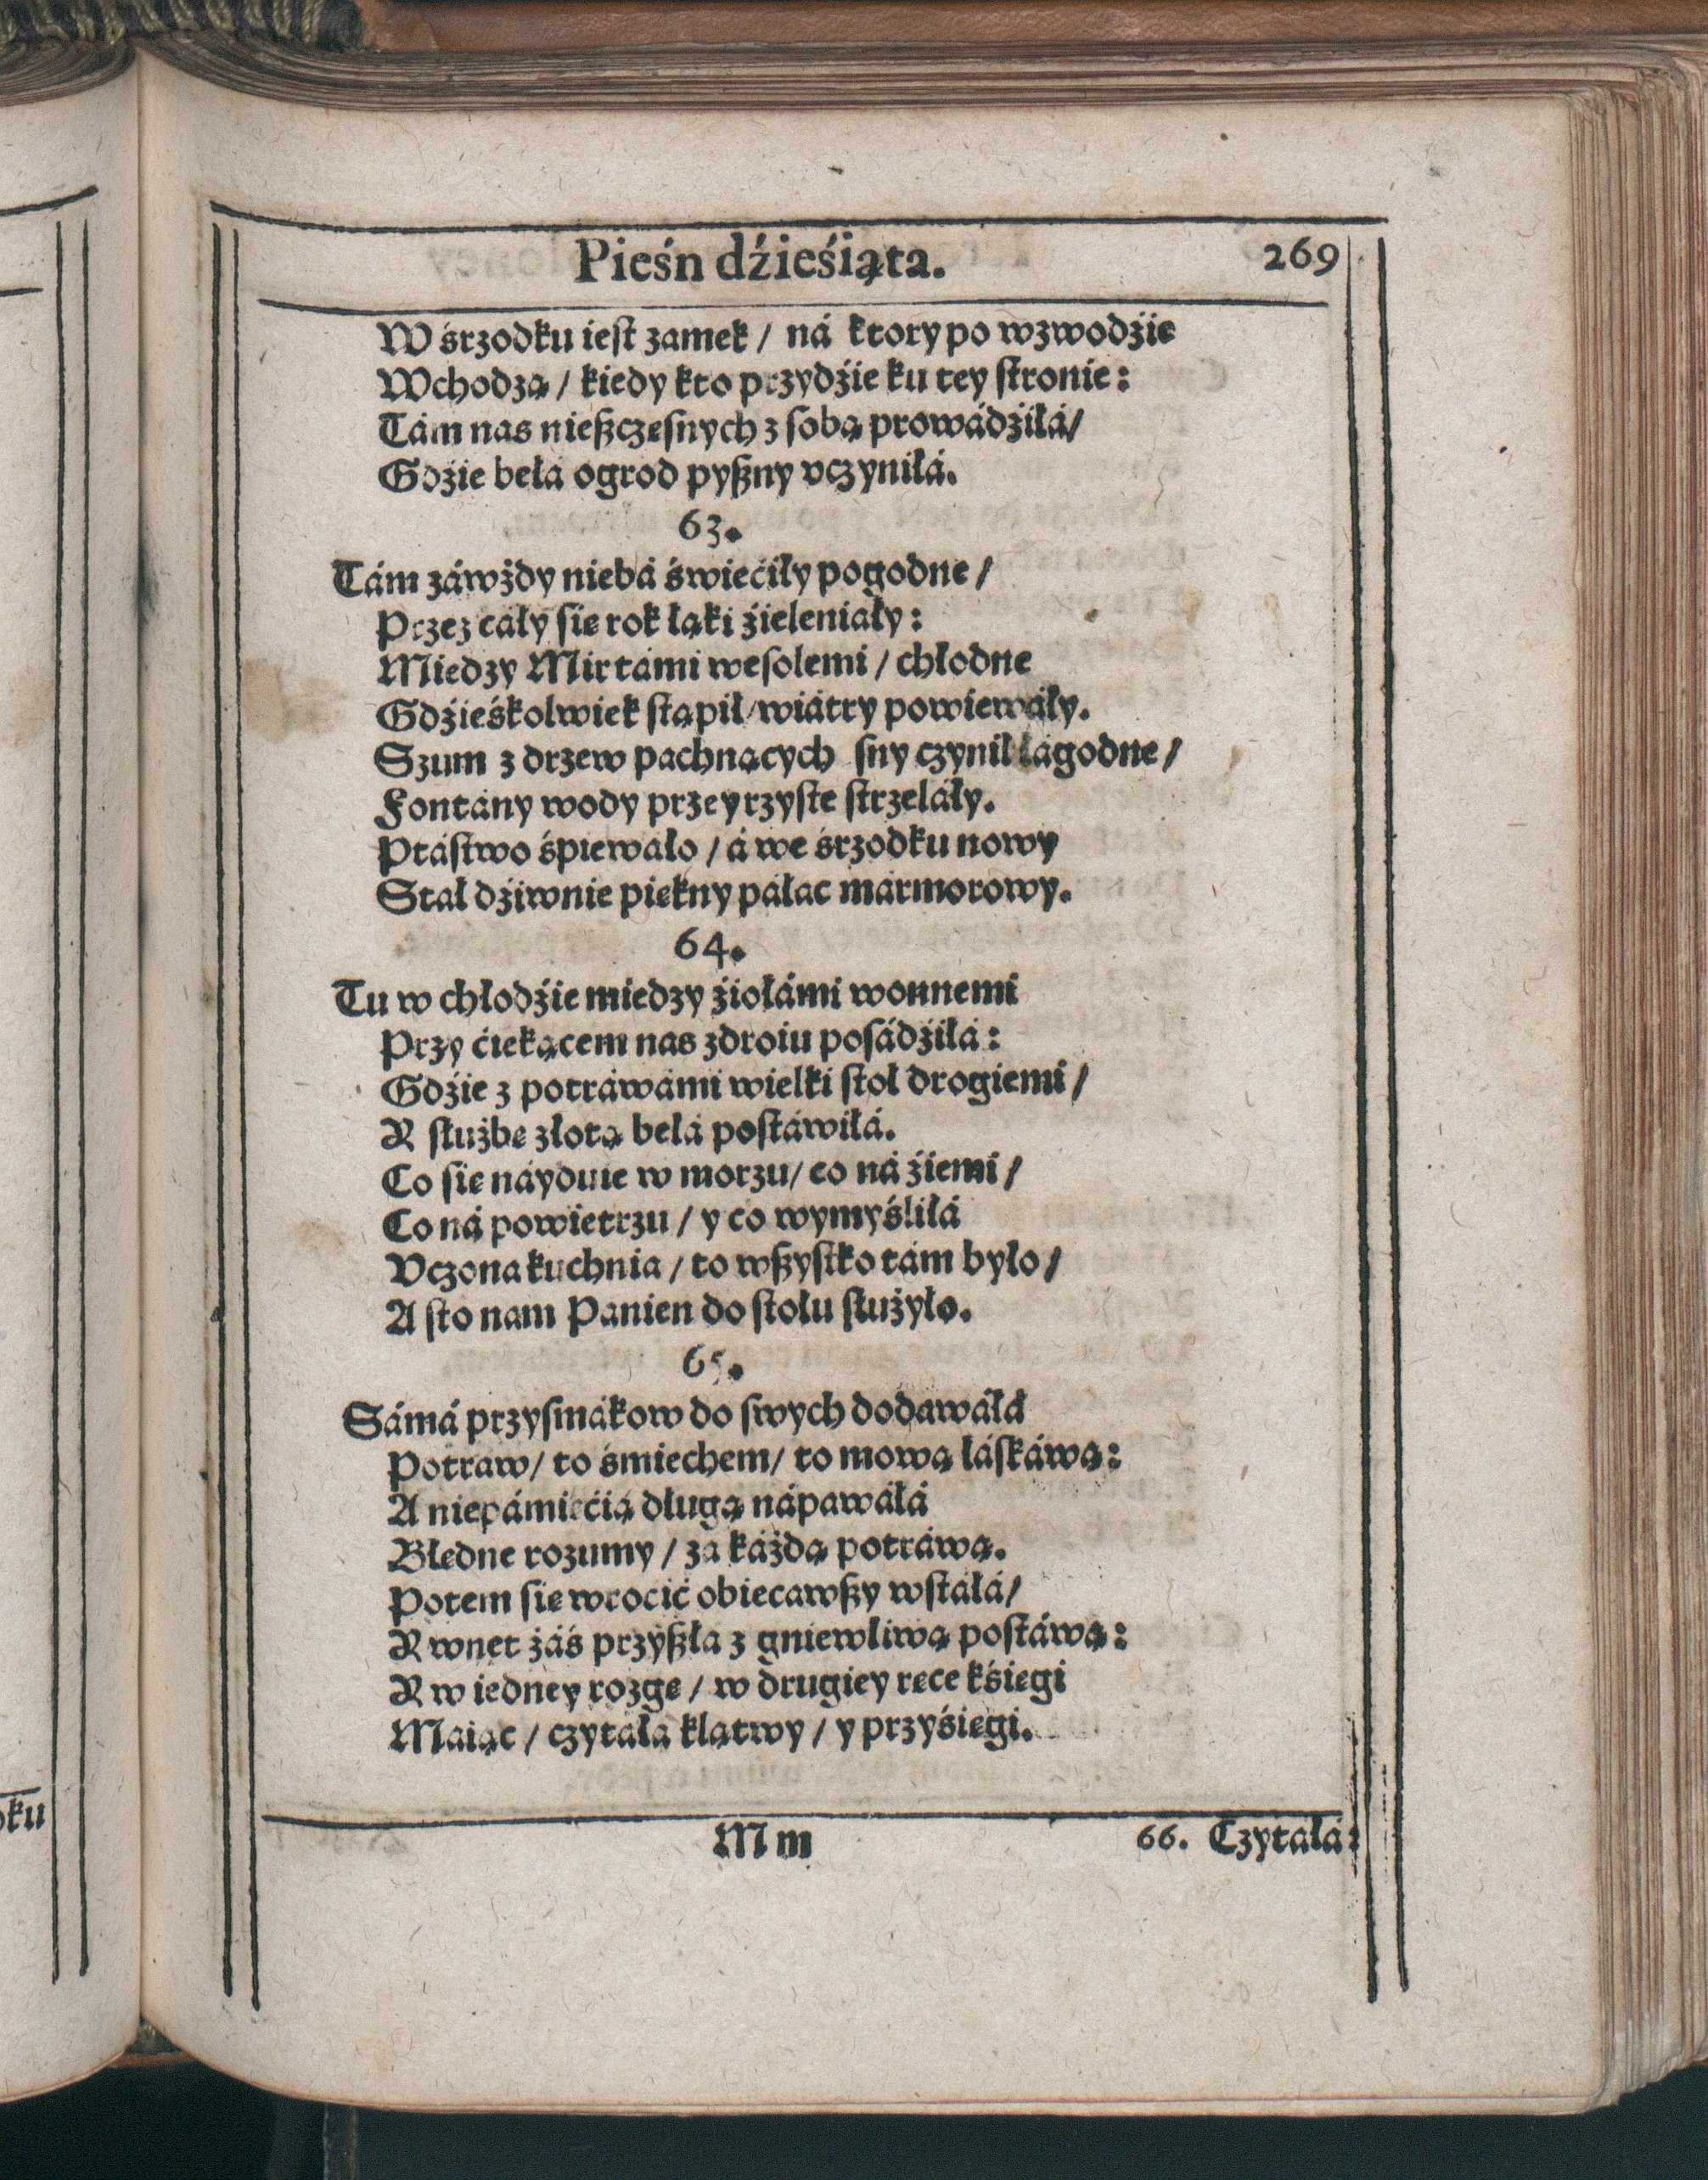 Pieśń dźieśiąta.
269
W śrzodku iest zamek / ná ktory po wzwodźie
Wchodzą / kiedy kto przydźie ku tey stronie:
Tám nas nießczesnych z sobą prowádźiłá/
Gdźie beła ogrod pyßny vczyniłá.
63.
Tám záwżdy niebá świećiły pogodne /
Przez cáły sie rok łąki źieleniáły:
Miedzy Mirtámi wesolemi / chłodne
Gdźieśkolwiek stąpił/ wiátry powiewáły.
Szum z drzew pachnących sny czynił łágodne /
Fontány wody przeyrzyste strzeláły.
Ptástwo śpiewáło / á we śrzodku nowy
Stał dźiwnie piękny páłac mármorowy.
64.
Tu w chłodźie miedzy źiołámi wonnemi
Przy ćiekącem nas zdroiu posádźiłá:
Gdźie z potráwámi wielki stoł drogiemi /
R służbę złotą bełá postáwiłá.
Co sie náyduie w morzu/ co ná źiemi /
Co ná powietrzu / y co wymyśliłá
Vczona kuchnia / to wßystko tám było /
A sto nam Panien do stołu służyło.
65.
Sámá przysmákow do swych dodawáłá
Potraw/ to śmiechem/ to mową łáskáwą:
A niepámięćią długą nápawáłá
Błędne rozumy / zá káżdą potráwą.
Potem sie wroćić obiecawßy wstáłá/
R wnet záś przyßła z gniewliwą postáwą:
R w iedney rozgę / w drugiey ręce kśięgi
Maiąc / czytáła klątwy / y przyśięgi.
Mm
66. Czytáłá:
oku